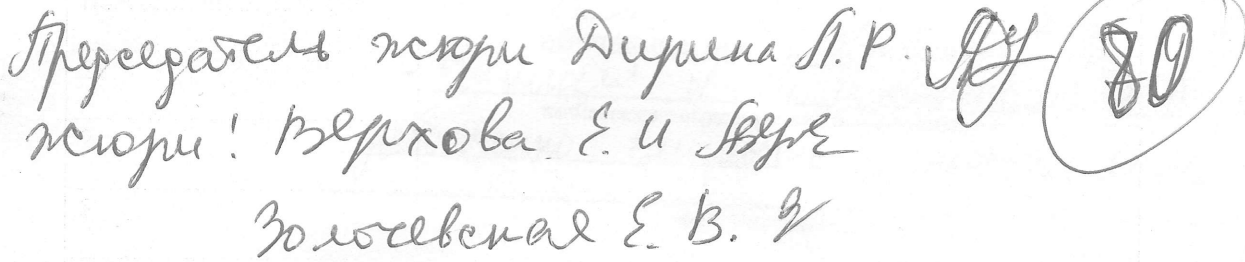 Председатель жюри Дирина Л.Р. 80
жюри! Верхова Е. И
Золочевская Е. В.